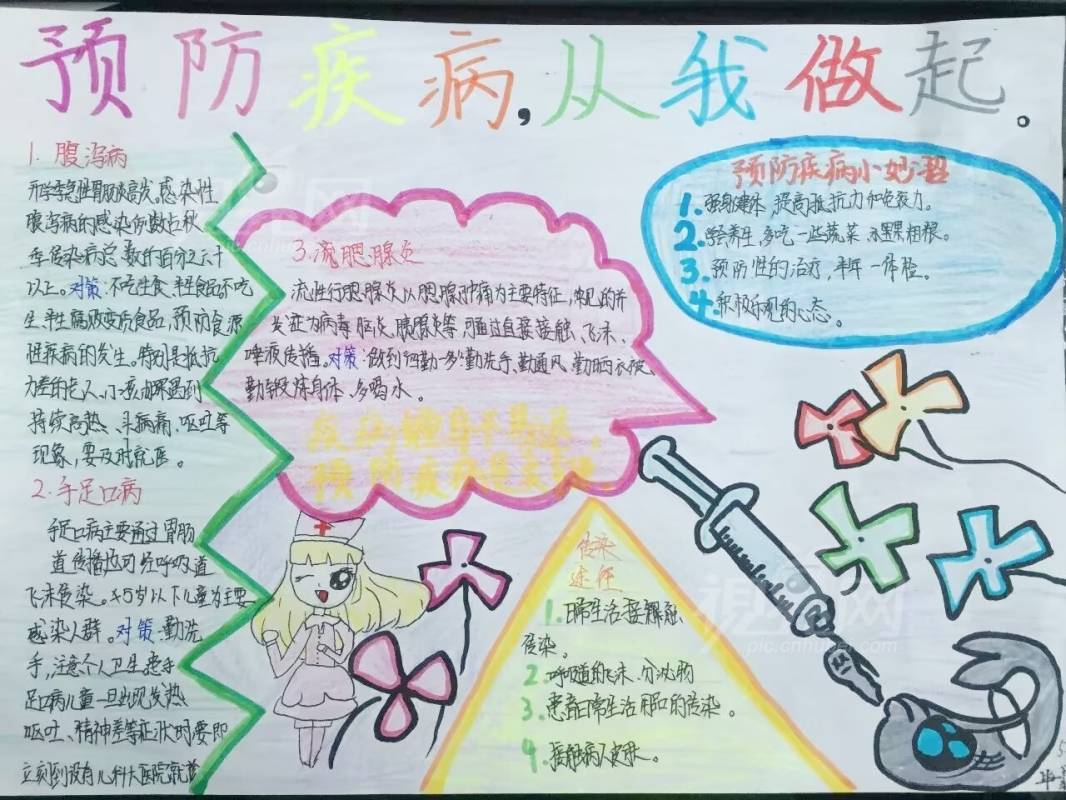 预防疾病,从我做起。
1. 腹泻病
开学季急性胃肠炎高发。感染性
腹泻病的感染例数占秋
季传染病总数的百分之六十
以上。对策:不吃生食、半生食品不吃
生、半生腐败变质食品,预防食源
性疾病的发生。特别是抵抗
力差的老人、小孩如果遇到
持续高热、斗病痛、呕吐等
现象,要及时就医。
2. 手足口病
手足口病主要通过胃肠
道传播也可经呼吸道
飞沫传染。5岁以下儿童为主要
感染人群。对策:勤洗
手,注意个人卫生患手
足口病儿童一旦出现发热、
呕吐、精神差等症状时要即
立刻到设有儿科大医院就诊
3. 流腮腺炎
流性行腮腺炎以腮腺肿痛为主要特征,常见的并
发症为病毒脑炎、胰腺炎等,可通过直接接触、飞沫、
唾液传播。对策:做到四勤多勤洗手、勤通风、勤晒衣被、
勤锻炼身体、多喝水。
预防疾病
预防疾病小妙招
1. 强身健体,提高抵抗力和免疫力。
2. 轻养生,多吃一些蔬菜、水果粗粮。
3. 预防性的治疗,半年一体检。
4. 积极乐观的心态。
传染
途径
1. 日常生活接触感
传染。
2 呼吸道的飞沫、分泌物
3. 患者正常生活用品的传染。
4. 接触病人皮肤。
pic.cnhubei.com